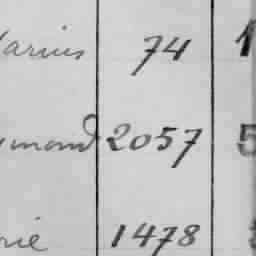 arius 74 1
ymond 2057 5
rie 1478